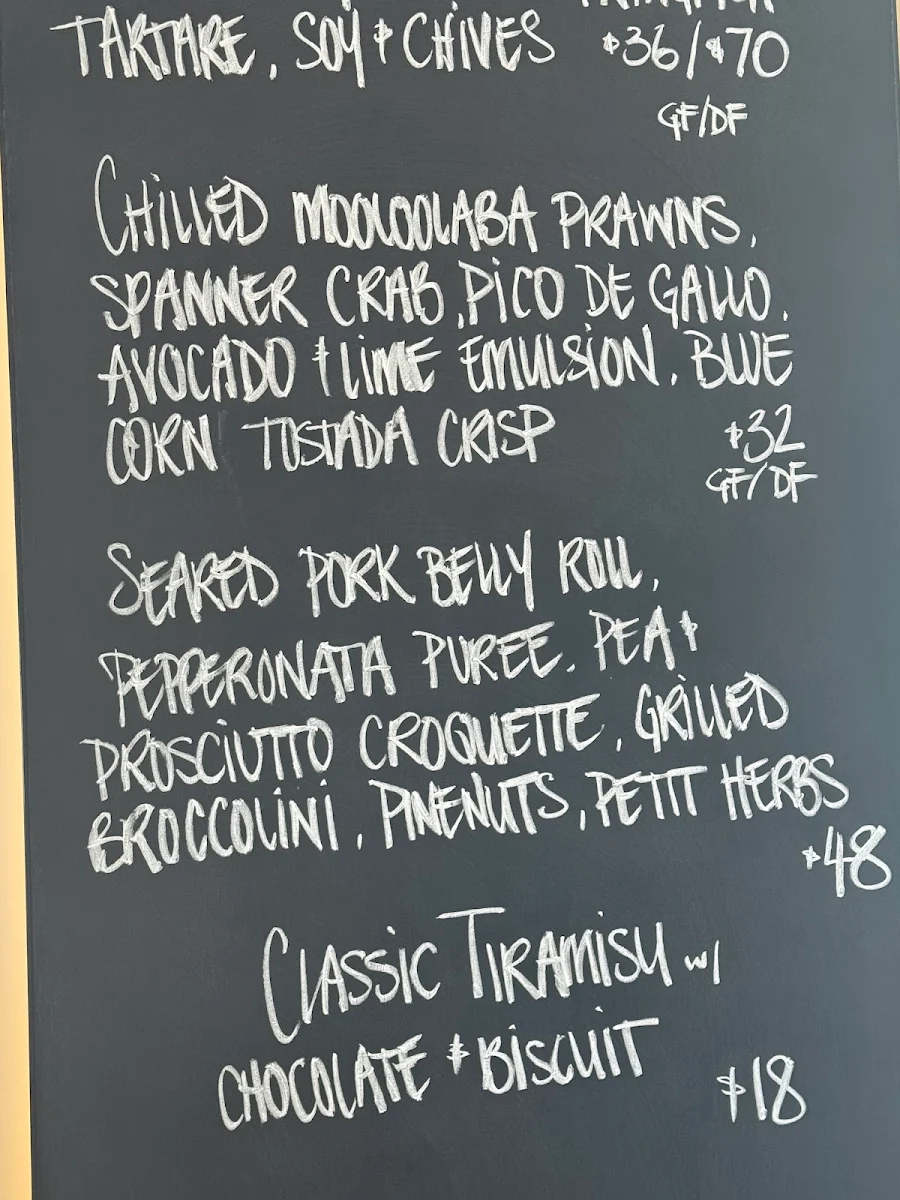 TARTARE, SOY & CHIVES $36/$70
GF/DF
CHILLED MOOLOOLABA PRAWNS,
SPANNER CRAB, PICO DE GALLO,
AVOCADO & LIME EMULSION, BLUE
CORN TOSTADA CRISP $32
GF/DF
SEARED PORK BELLY ROLL,
PEPPERONATA PUREE, PEA &
PROSCIUTTO CROQUETTE, GRILLED
BROCCOLINI, PINENUTS, PETIT HERBS
$48
CLASSIC TIRAMISU w/
CHOCOLATE & BISCUIT $18